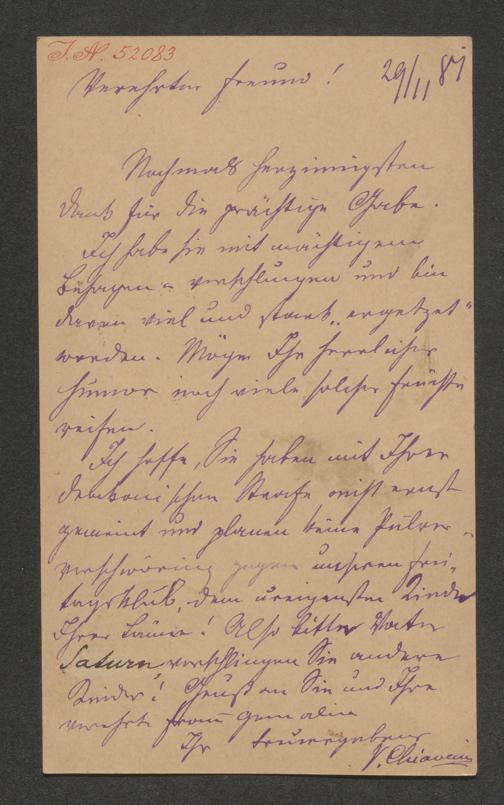 I.N. 52083
Verehrter Freund! 29/11 87
Nochmals herzinnigsten
Dank für die prächtige Gabe.
Ich habe sie mit mächtigem
Behagen verschlungen und bin
davon viel und stark "ergetzet"
worden. Möge Ihr herrlicher
Humor noch viele solcher Früchte
reifen.
Ich hoffe, Sie haben mit Ihrer
drakonischen Strafe nicht ernst
gemeint und planen keine Pulver-
verschwörung gegen unseren Frei-
tagsklub, dem ureigensten Kinde
Ihrer Laune! Also bitte Vater
Saturn verschlingen Sie andere
Kinder! Grüß an Sie und Ihre
verehrte Frau Gemalin
Ihr treuergebener
V. Chiavacci